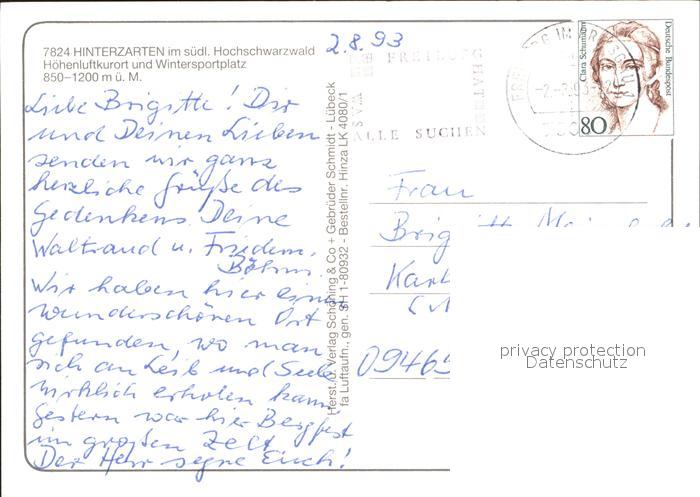 7824 HINTERZARTEN im südl. Hochschwarzwald
Höhenluftkurort und Wintersportplatz
850–1200 m ü. M.
2.8.93
Liebe Brigitte! Dir
und Deinen Lieben
senden wir ganz
herzliche Grüße des
Gedenkens Deine
Waltraud u. Friedem.
Böhm.
Wir haben hier einen
wunderschönen Ort
gefunden, wo man
sich an Leib und Seele
wirklich erholen kann
Gestern war hier Bergfest
im großen Zelt
Der Herr segne Euch!
Herst. u. Verlag Schöning & Co + Gebrüder Schmidt - Lübeck
fa Luftaufn., gen. SH 1-80932 - Bestellnr. Hinza LK 4080/1
FREIBURG HAT
WAS
ALLE SUCHEN
FREIBURG IM BREISGAU
Clara Schumann
Deutsche Bundespost
80
Frau
Brig
Karl
0946
privacy protection
Datenschutz